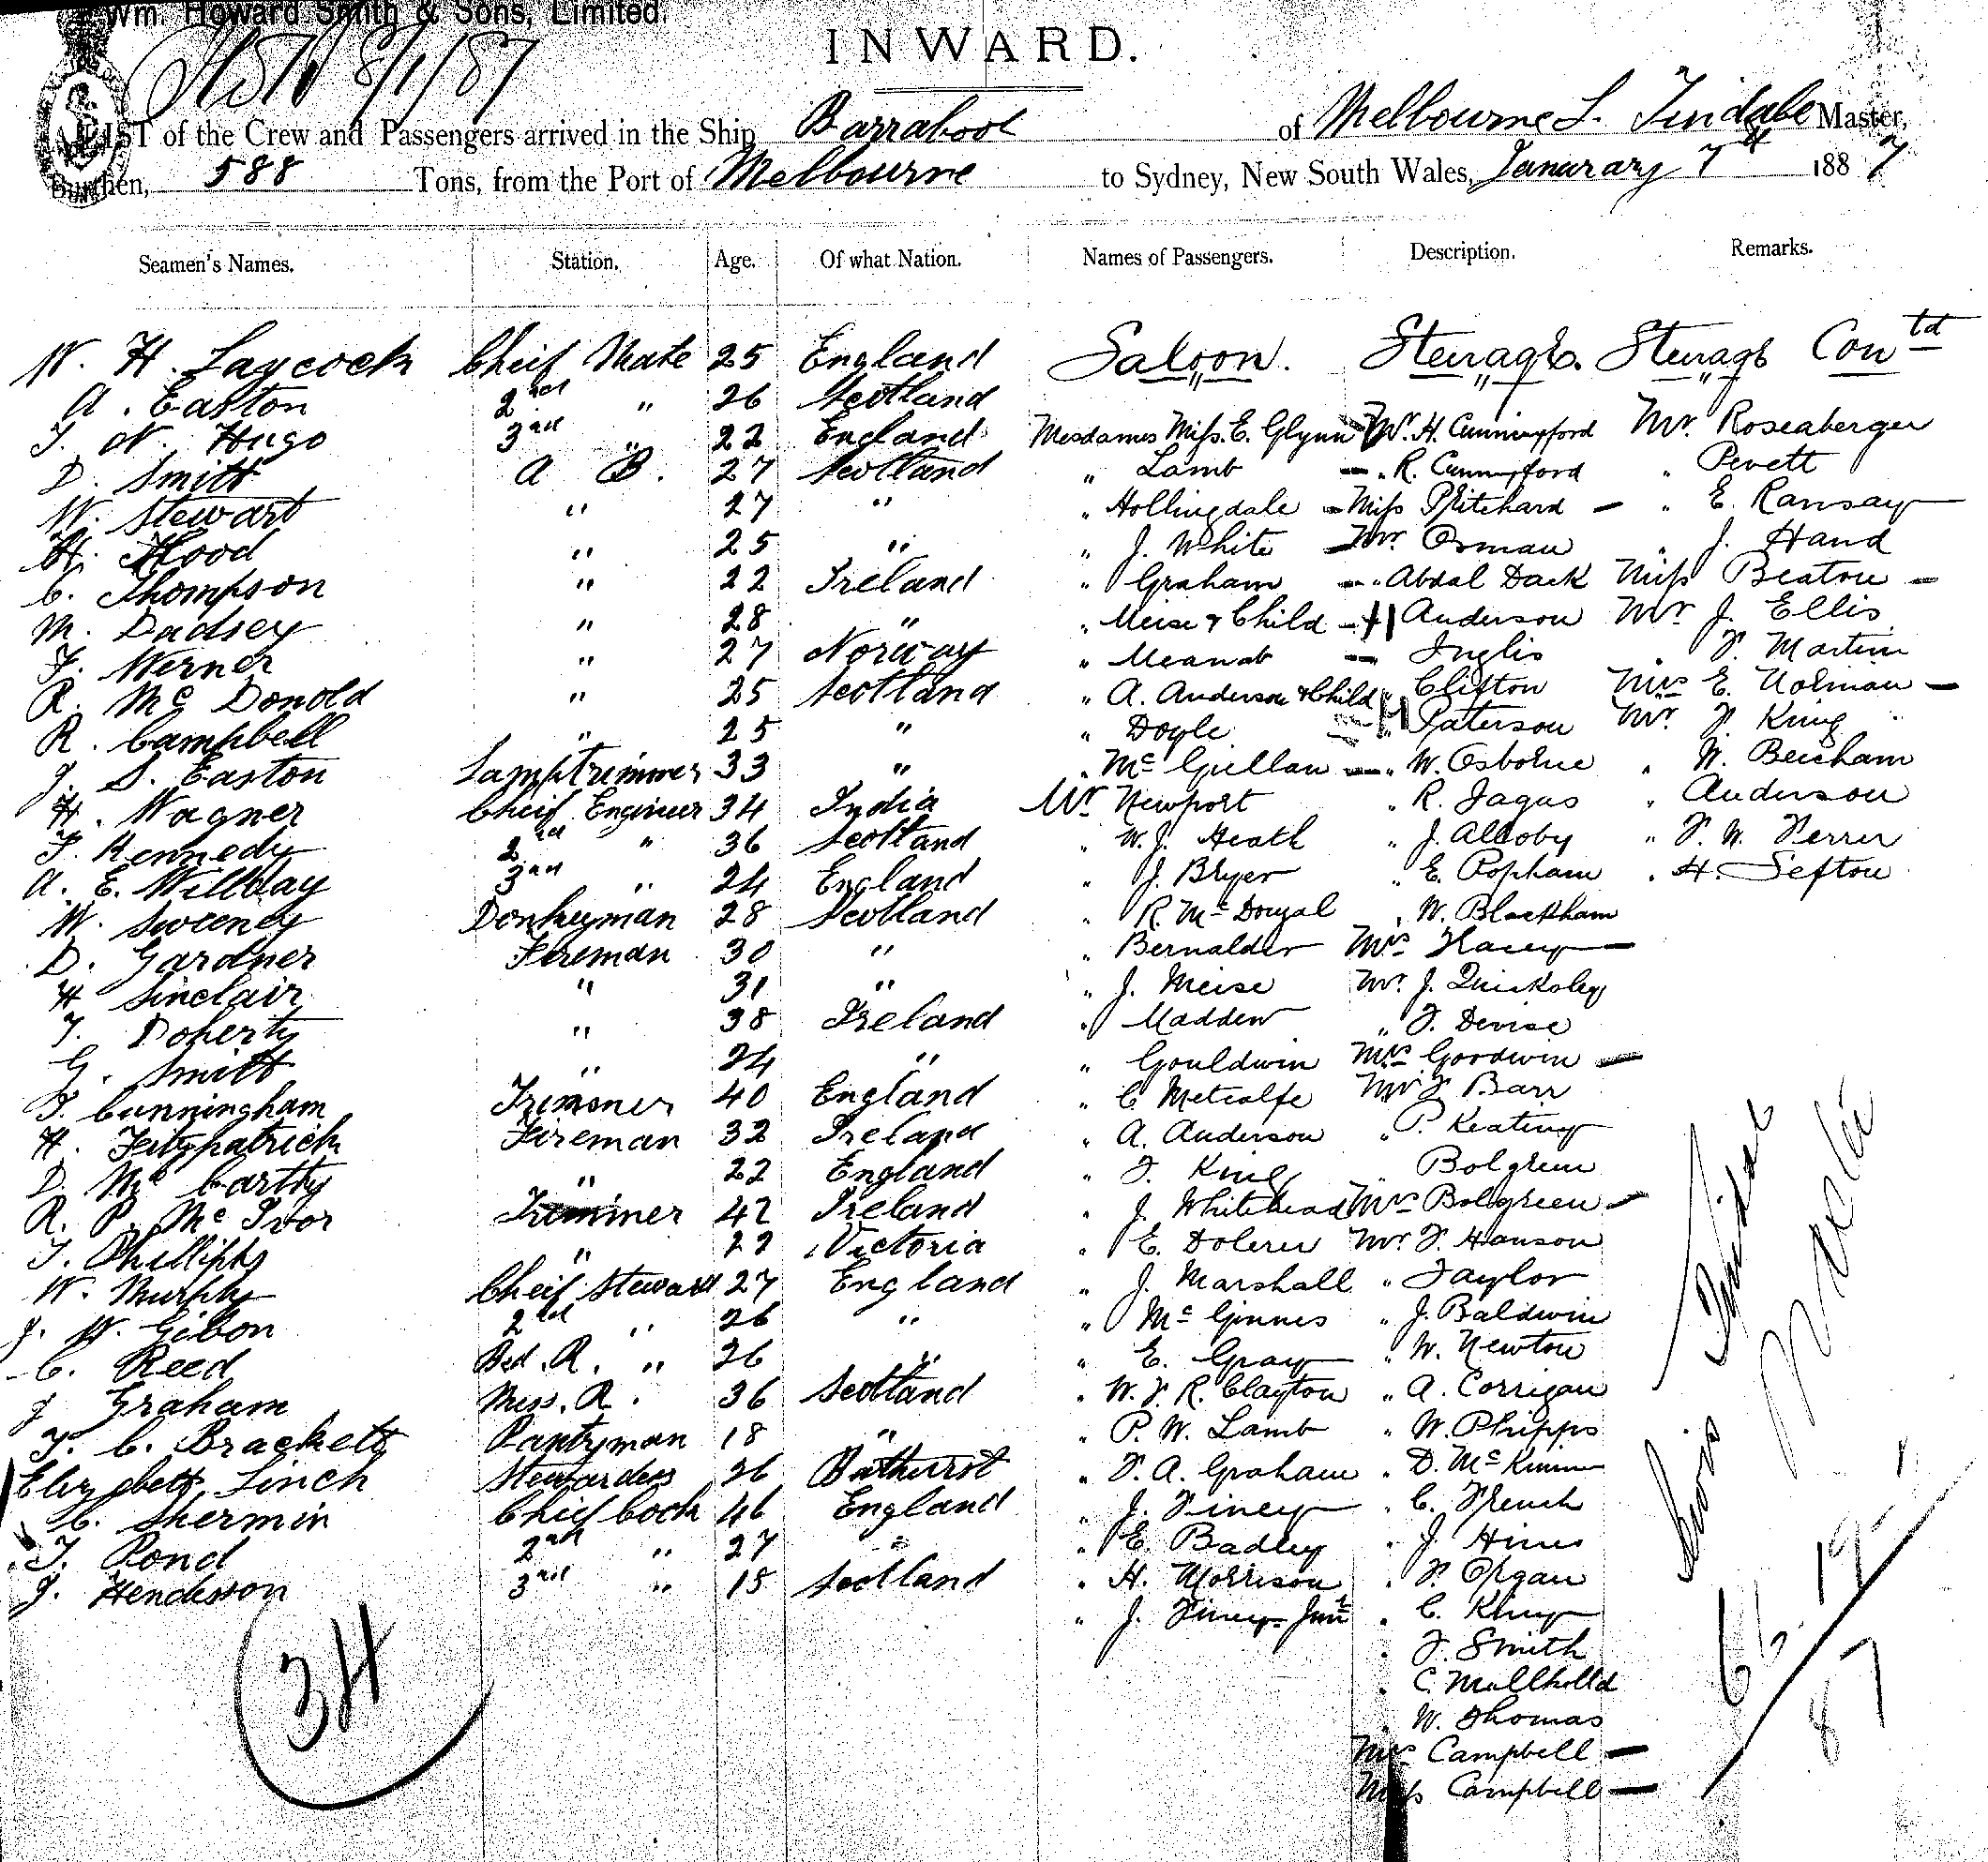 Wm. Howard Smith & Sons, Limited.
8/1/87
INWARD.
A LIST of the Crew and Passengers arrived in the Ship Barrabool of Melbourne L. Tindale Master,
Burthen, 588 Tons, from the Port of Melbourne to Sydney, New South Wales, Janurary 7th 1887
Seamen's Names. Station. Age. Of what Nation. Names of Passengers. Description. Remarks.
Saloon. Steerage. Steerage Contd
W. H. Laycock Cheif Mate 25 England
A. Easton 2nd " 26 Scotland
T. N. Hugo 3rd " 22 England Mesdames Miss. E. Glynn W. H. Cunningford Mr. Roseaberger
D. Smith A B. 27 Scotland " Lamb " R. Cunningford " Pevett
W. Stewart " 27 " " Hollingdale Miss Pritchard " E. Ramsay
H. Hood " 25 " " J. White Mr. Osman " J. Hand
C. Thompson " 22 Ireland " Graham " Abdal Dack Miss Beaton
M. Dadsey " 28 " " Meise & Child Anderson Mr J. Ellis
F. Werner " 27 Norway " Meanab Inglis " F. Martin
R. Mc Donold " 25 Scotland " A. Anderson & Child " Clifton Mrs E. Holman
R. Campbell " 25 " " Doyle " Paterson Mr. F. King
J. S. Easton Lamptrimmer 33 " " Mc Gullan " W. Osborne " W. Beicham
H. Wagner Cheif Engineer 34 India Mr Newport " R. Jagus " Anderson
T. Kennedy 2nd " 36 Scotland " W. J. Heath " J. Alloby " F. W. Ferrer
A. E. Willday 3rd " 24 England " J. Bryer " E. Popham " H. Sefton
W. Sweeney Donkeyman 28 Scotland " R. Mc Dougal " W. Blackham
D. Gardner Fireman 30 " " Bernalder Mrs Hacey
H Sinclair " 31 " " J. Meise Mr. J. Quickoley
T. Doherty " 38 Ireland " Madden " F. Devise
G. Smith " 24 " " Gouldwin Mrs Goodwin
T. Cunningham Trimmer 40 England " C Metcalfe Mr F Barr
H. Fitzpatrick Fireman 32 Ireland " A. Anderson " P. Keating
D. Mc Carthy " 22 England " F. King " Bolgreen
R. P. Mc Ivor Trimmer 42 Ireland " J. Whitehead Mrs Bolgreen
T. Phillipps " 22 Victoria " E. Dolerer Mr. F. Hanson
W. Murphy Cheif Steward 27 England " J. Marshall " Taylor
J. W. Gibon 2nd " 26 " " Mc Ginnes " J. Baldwin
C. Reed Bed. R. " 26 " " E. Gray " W. Newton
J Graham Mess. R. 36 Scotland " W. F. R. Clayton " A. Corrigan
T. C. Brackett Pantryman 18 " " P. W. Lamb " W. Phipps
Elizabeth Linch Stewardess 26 Bathurst " F. A. Graham " D. Mc Kimm
C. Shermin Cheif Cook 46 England " J. Finey " C. French
T. Pond 2nd " 27 " " E. Badley " J Hines
J. Henderson 3rd " 15 Scotland " H. Morrison " F. Organ
" J. Finey Junr " C. King
34 " F. Smith
" C. Mullholld
" W. Thomas
Mrs Campbell
Miss Campbell
Lewis Tindale
Master
87